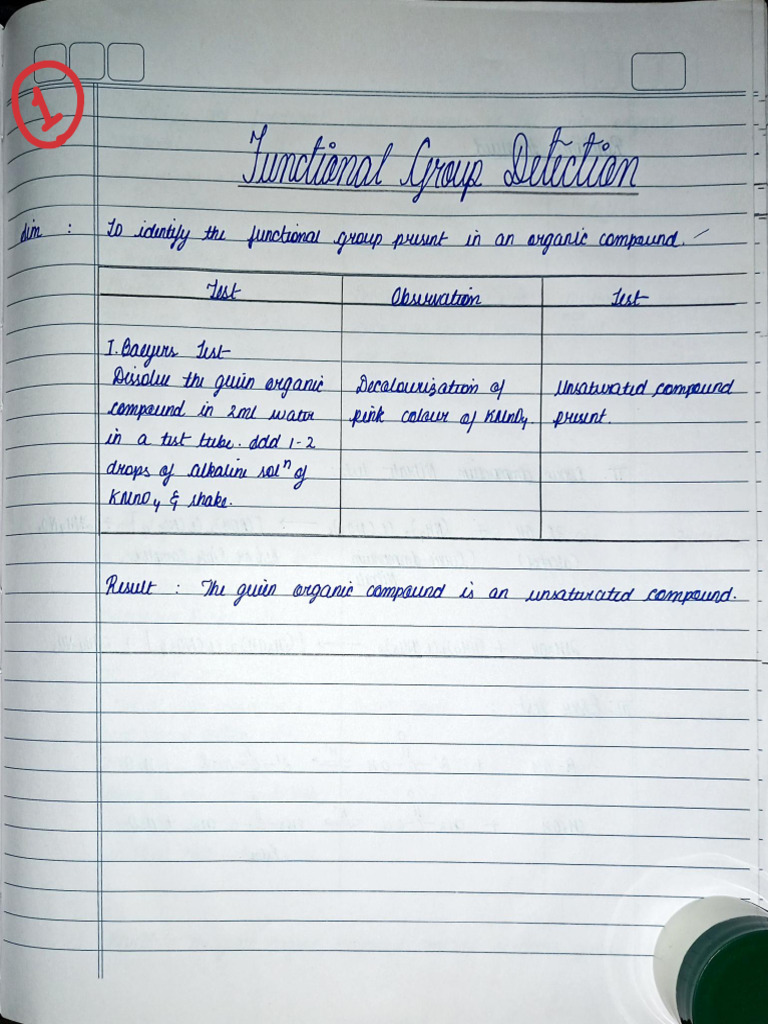 1
Functional Group Detection
Aim : To identify the functional group present in an organic compound.
Test Observation Test
I. Baeyers Test
Dissolve the given organic Decolourization of Unsaturated compound
compound in 2ml water pink colour of KMnO4 present.
in a test tube. Add 1-2
drops of alkaline solⁿ of
KMnO4 & shake.
Result : The given organic compound is an unsaturated compound.